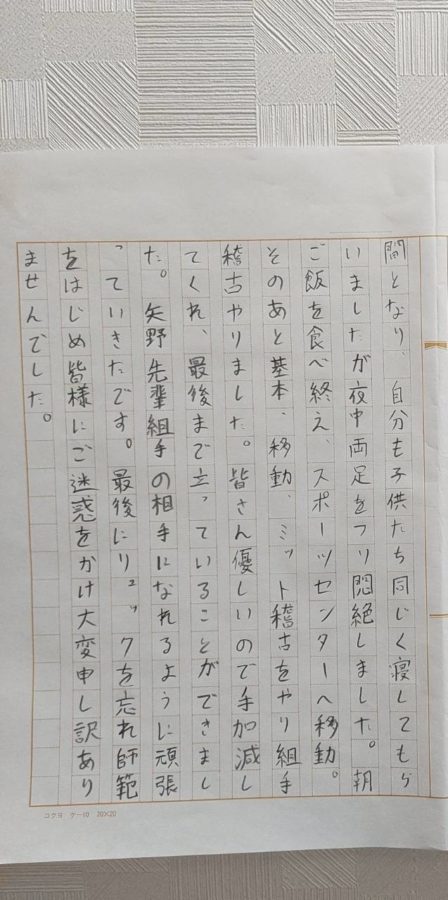 間となり、自分も子供たち同じく寝してもら
いましたが夜中両足をつり悶絶しました。朝
ご飯を食べ終え、スポーツセンターへ移動。
そのあと基本、移動、ミット稽古をやり組手
稽古やりました。皆さん優しいので手加減し
てくれ、最後まで立っていることができまし
た。矢野先輩組手の相手になれるように頑張
っていきたです。最後にリュックを忘れ師範
をはじめ皆様にご迷惑をかけ大変申し訳あり
ませんでした。
コクヨ ケー10 20×20